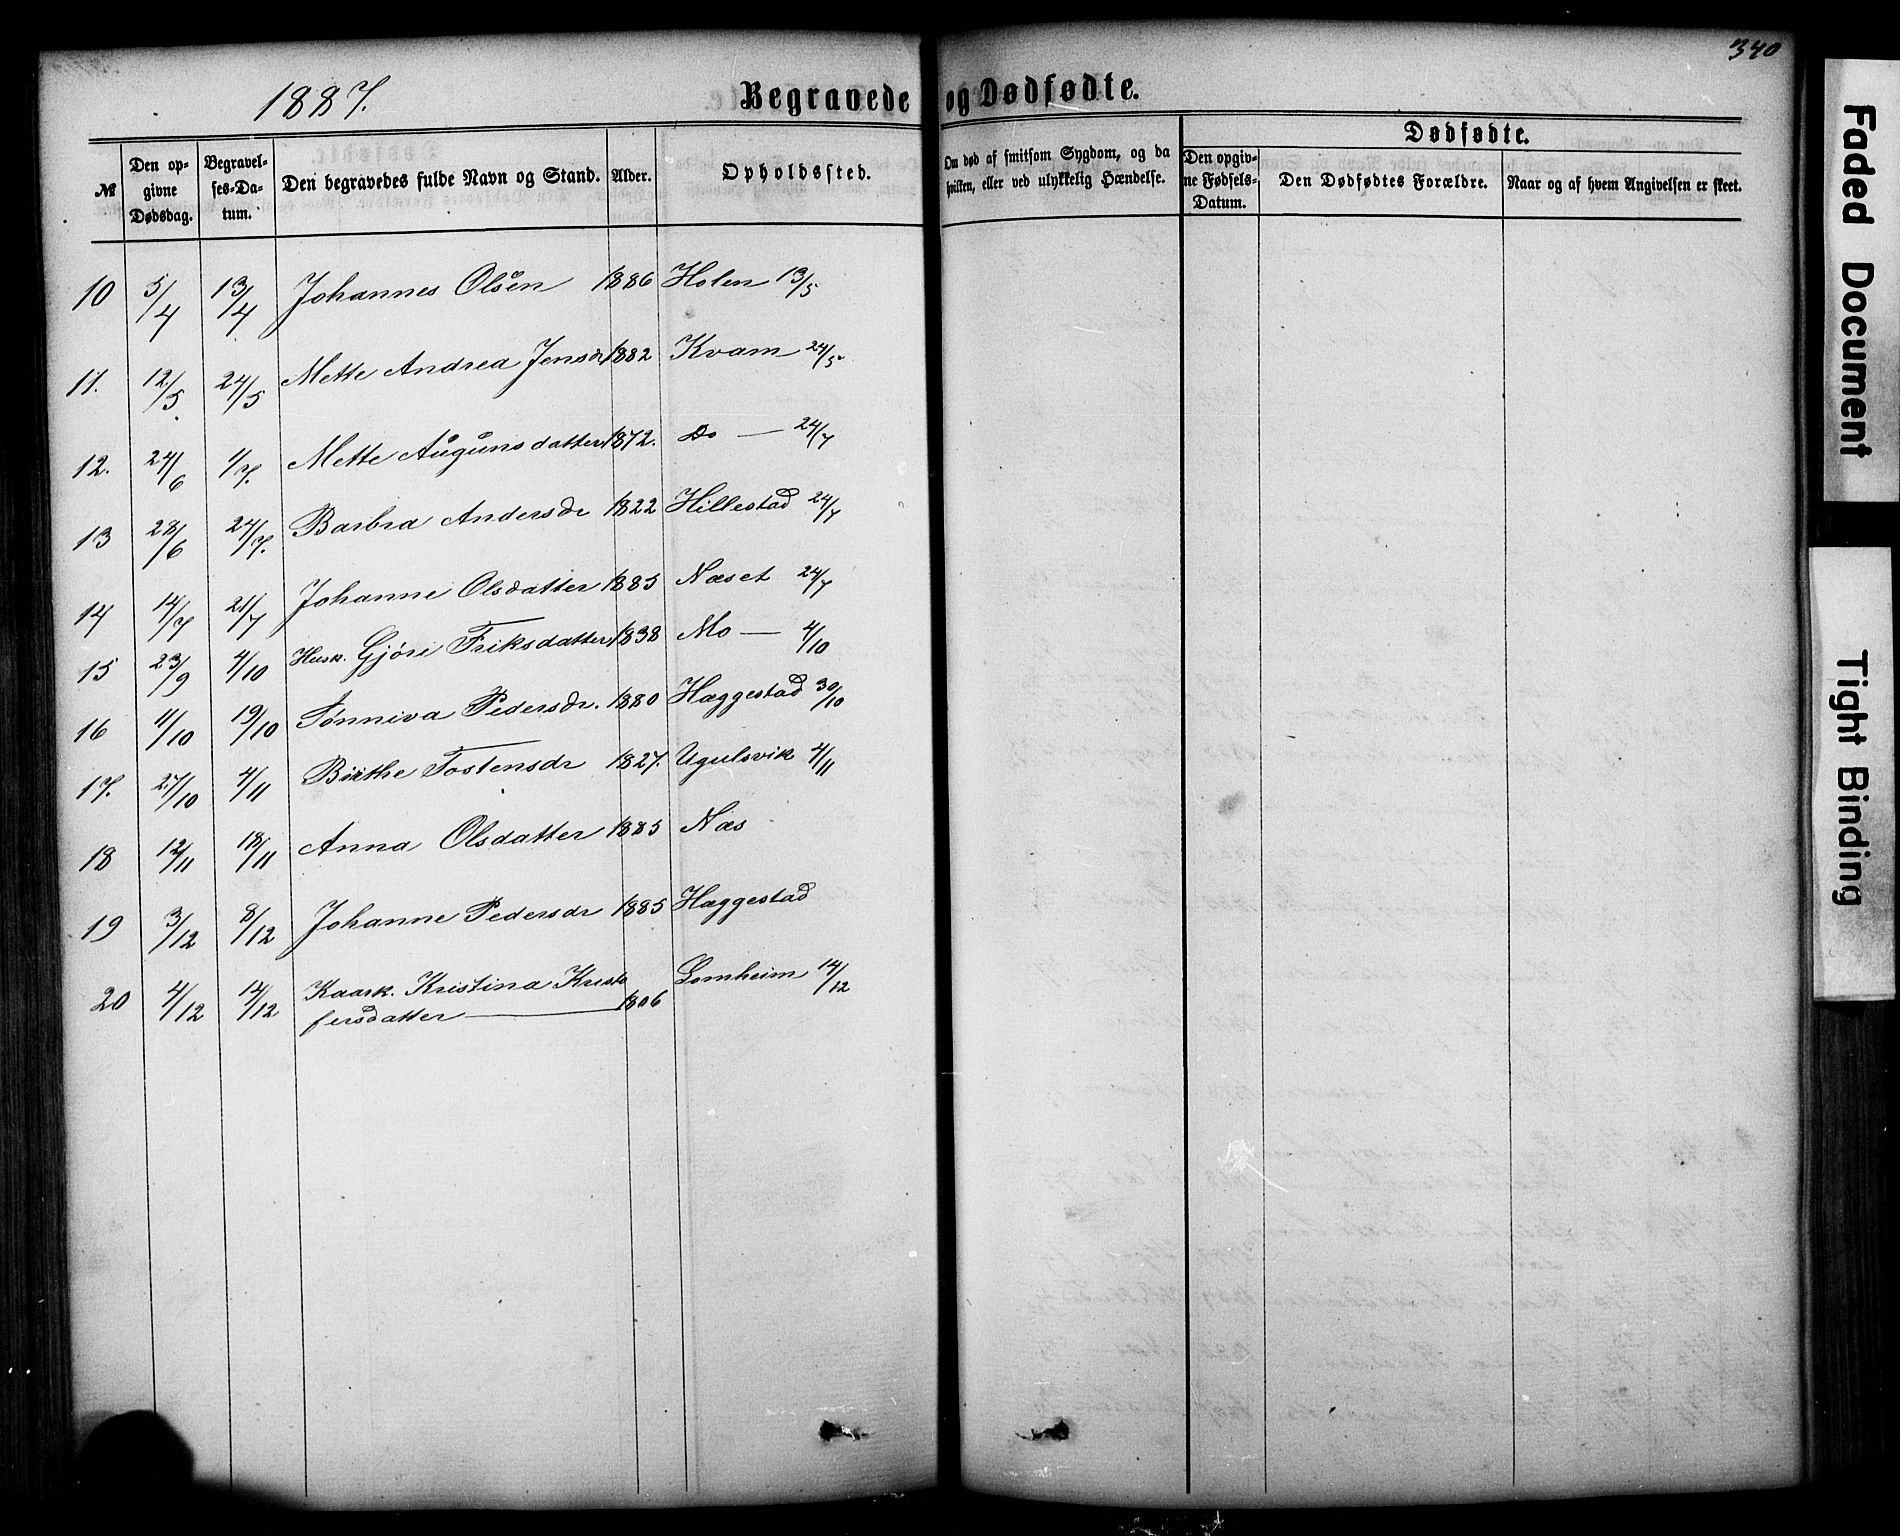 340
1887.
Begravede og Dødfødte.
№ Den opgivne Dødsdag. Begravelses-Datum. Den begravedes fulde Navn og Stand. Alder. Opholdssted. Om død af smitsom Sygdom, og da hvilken, eller ved ulykkelig Hændelse. Dødfødte.
Den opgivne Fødsels-Datum. Den Dødfødtes Forældre. Naar og af hvem Angivelsen er skeet.
10 5/4 13/4 Johannes Olsen 1886 Holen 13/5
11. 12/5 24/5 Mette Andrea Jensdr 1882 Kvam 24/5
12. 24/6 1/7. Mette Augunsdatter 1872. Do — 24/7
13 28/6 24/7. Barbra Andersdr 1822 Hillestad 24/7
14 14/7 21/7 Johanne Olsdatter 1885 Næset 24/7
15 23/9 4/10 Husk. Gjøri Eriksdatter 1838 Mo — 4/10
16 11/10 19/10 Sønniva Pedersdr. 1880 Hæggestad 30/10
17. 27/10 4/11 Birthe Tostensdr 1827. Ugulsvik 4/11
18 12/11 18/11 Anna Olsdatter 1885 Næs
19 3/12 8/12 Johanne Pedersdr 1885 Hæggestad
20 4/12 14/12 Kaark. Kristina Kristo
fersdatter — 1806 Lomheim 14/12
Faded Document
Tight Binding